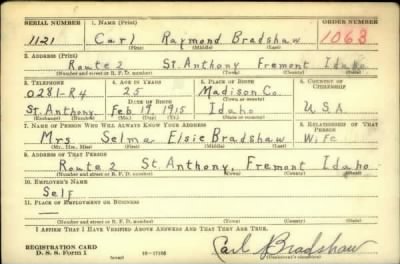 SERIAL NUMBER 1. NAME (Print) ORDER NUMBER
1121 Carl Raymond Bradshaw 1063
(First) (Middle) (Last)
2. ADDRESS (Print)
Route 2 St. Anthony Fremont Idaho
(Number and street or R. F. D. number) (Town) (County) (State)
3. TELEPHONE 4. AGE IN YEARS 5. PLACE OF BIRTH 6. COUNTRY OF CITIZENSHIP
0281-R4 25 Madison Co.
DATE OF BIRTH (Town or county)
St. Anthony Feb 19 1915 Idaho USA
(Exchange) (Mo.) (Day) (Yr.) (State or country)
7. NAME OF PERSON WHO WILL ALWAYS KNOW YOUR ADDRESS 8. RELATIONSHIP OF THAT PERSON
Mrs Selma Elsie Bradshaw Wife
(Mr., Mrs., Miss) (First) (Middle) (Last)
9. ADDRESS OF THAT PERSON
Route 2 St. Anthony, Fremont Idaho
(Number and street or R. F. D. number) (Town) (County) (State)
10. EMPLOYER'S NAME
Self
11. PLACE OF EMPLOYMENT OR BUSINESS
—
(Number and street or R. F. D. number) (Town) (County) (State)
I AFFIRM THAT I HAVE VERIFIED ABOVE ANSWERS AND THAT THEY ARE TRUE.
REGISTRATION CARD
D. S. S. Form 1 Carl Bradshaw
(Registrant's signature)